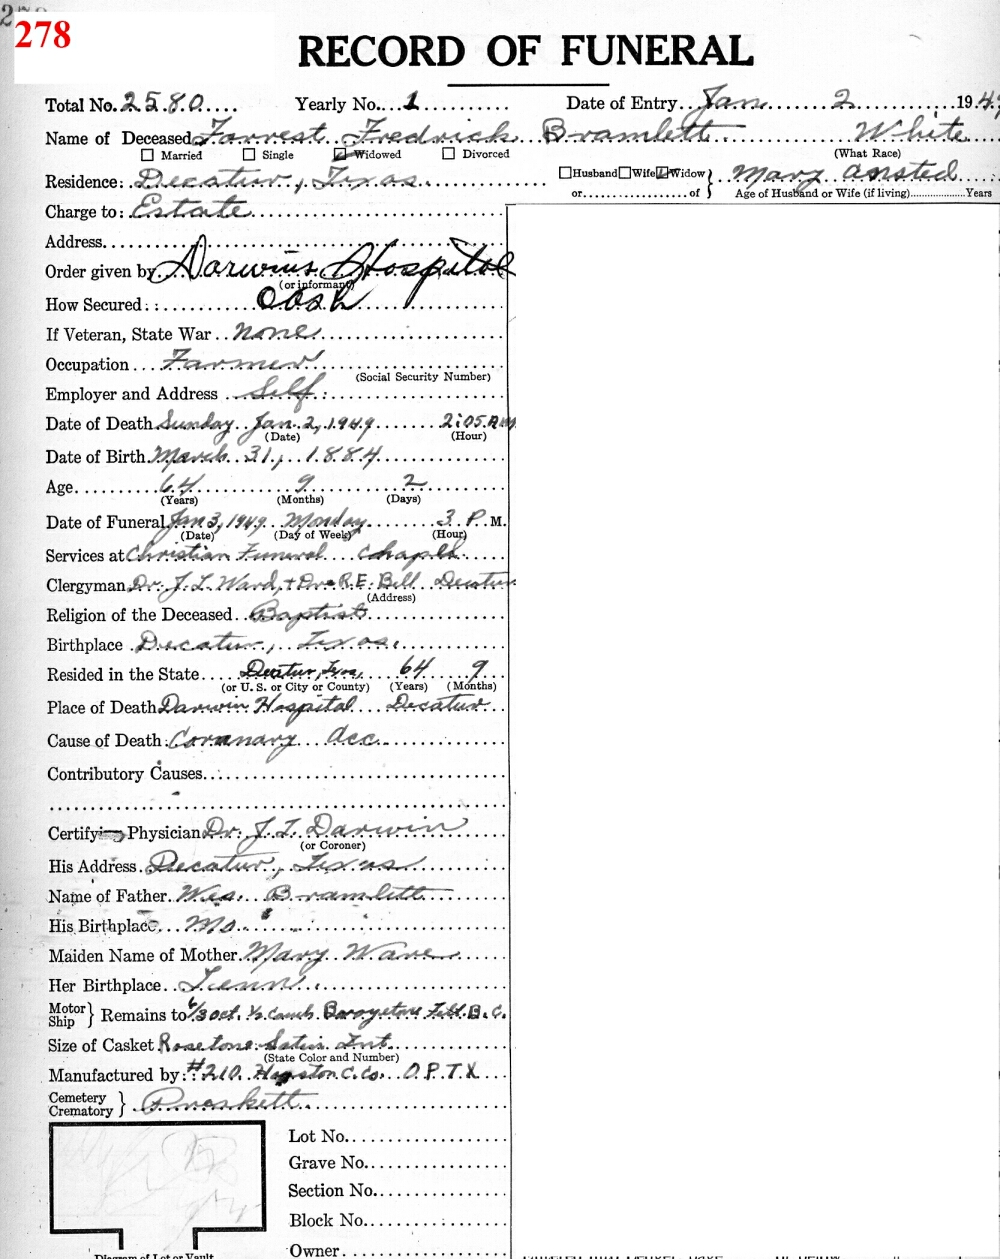 278
RECORD OF FUNERAL
Total No. 2580 Yearly No. 1 Date of Entry Jan 2 194
Name of Deceased Forrest Fredrick Bramlett White
Married Single Widowed Divorced (What Race)
Residence: Decatur, Texas Husband Wife Widow or of } Mary Ansted
Age of Husband or Wife (if living) Years
Charge to: Estate
Address
Order given by Darwins Hospital
(or informant)
How Secured: Cash
If Veteran, State War None
Occupation Farmer
(Social Security Number)
Employer and Address Self
Date of Death Sunday Jan. 2, 1949 2:05 P.M.
(Date) (Hour)
Date of Birth March 31, 1884
Age 64 9 2
(Years) (Months) (Days)
Date of Funeral Jan 3, 1949 Monday 3 P. M.
(Date) (Day of Week) (Hour)
Services at Christian Funeral Chapel
Clergyman Dr. J. L. Ward, + R.E. Bell Decatur
(Address)
Religion of the Deceased Baptist
Birthplace Decatur, Texas.
Resided in the State Decatur, Texas, 64 9
(or U. S. or City or County) (Years) (Months)
Place of Death Darwin Hospital Decatur
Cause of Death: Coronary Acc.
Contributory Causes
Certifying Physician Dr. J. I. Darwin
(or Coroner)
His Address Decatur, Texas
Name of Father Wes. Bramlett
His Birthplace Mo.
Maiden Name of Mother Mary Ware
Her Birthplace Tenn.
Motor Ship } Remains to 6/3 Oct. 1/2 B.C.
Size of Casket Rosetone Satin Int.
(State Color and Number)
Manufactured by: #210 C. Co. O.P.T.X
Cemetery Crematory }
Lot No.
Grave No.
Section No.
Block No.
Owner
Diagram of Lot or Vault